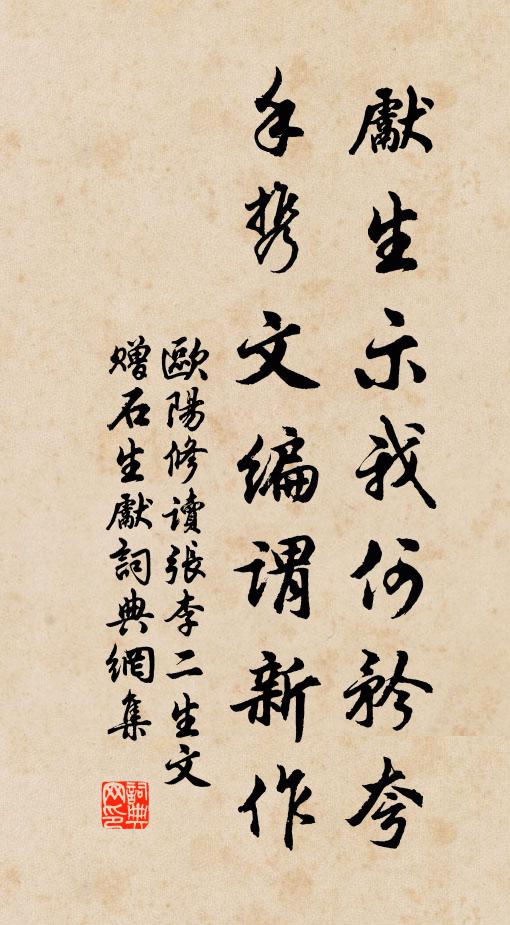 獻生示我何矜夸
手携文編謂新作
歐陽修讀張李二生文
贈石生獻詞典網集
詞典
网印